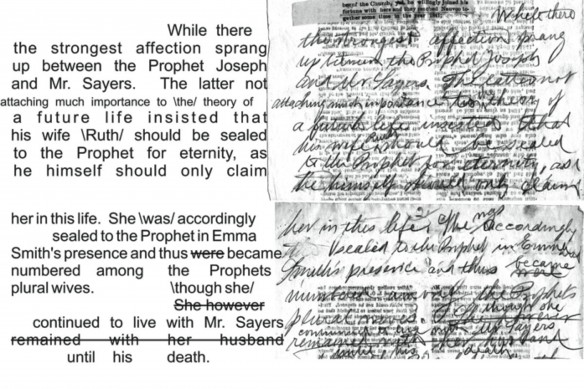 While there
the strongest affection sprang
up between the Prophet Joseph
and Mr. Sayers. The latter not
attaching much importance to \the/ theory of
a future life insisted that
his wife \Ruth/ should be sealed
to the Prophet for eternity, as
he himself should only claim
of the Church, yet he willingly joined his
fortune with hers and they reached Nauvoo to-
gether some time in the year 1841.
While there
the strongest affection sprang
up between the Prophet Joseph
and Mr. Sayers. The latter not
attaching much importance to the theory of
a future life insisted that
his wife should be sealed
to the Prophet for eternity, as
he himself should only claim
her in this life. She \was/ accordingly
sealed to the Prophet in Emma
Smith's presence and thus were became
numbered among the Prophets
plural wives. \though she/
She however
continued to live with Mr. Sayers
remained with her husband
until his death.
her in this life. She was accordingly
sealed to the Prophet in Emma
Smith's presence and thus were became
numbered among the Prophets
plural wives. though she
She however
continued to live with Mr. Sayers
remained with her husband
until his death.